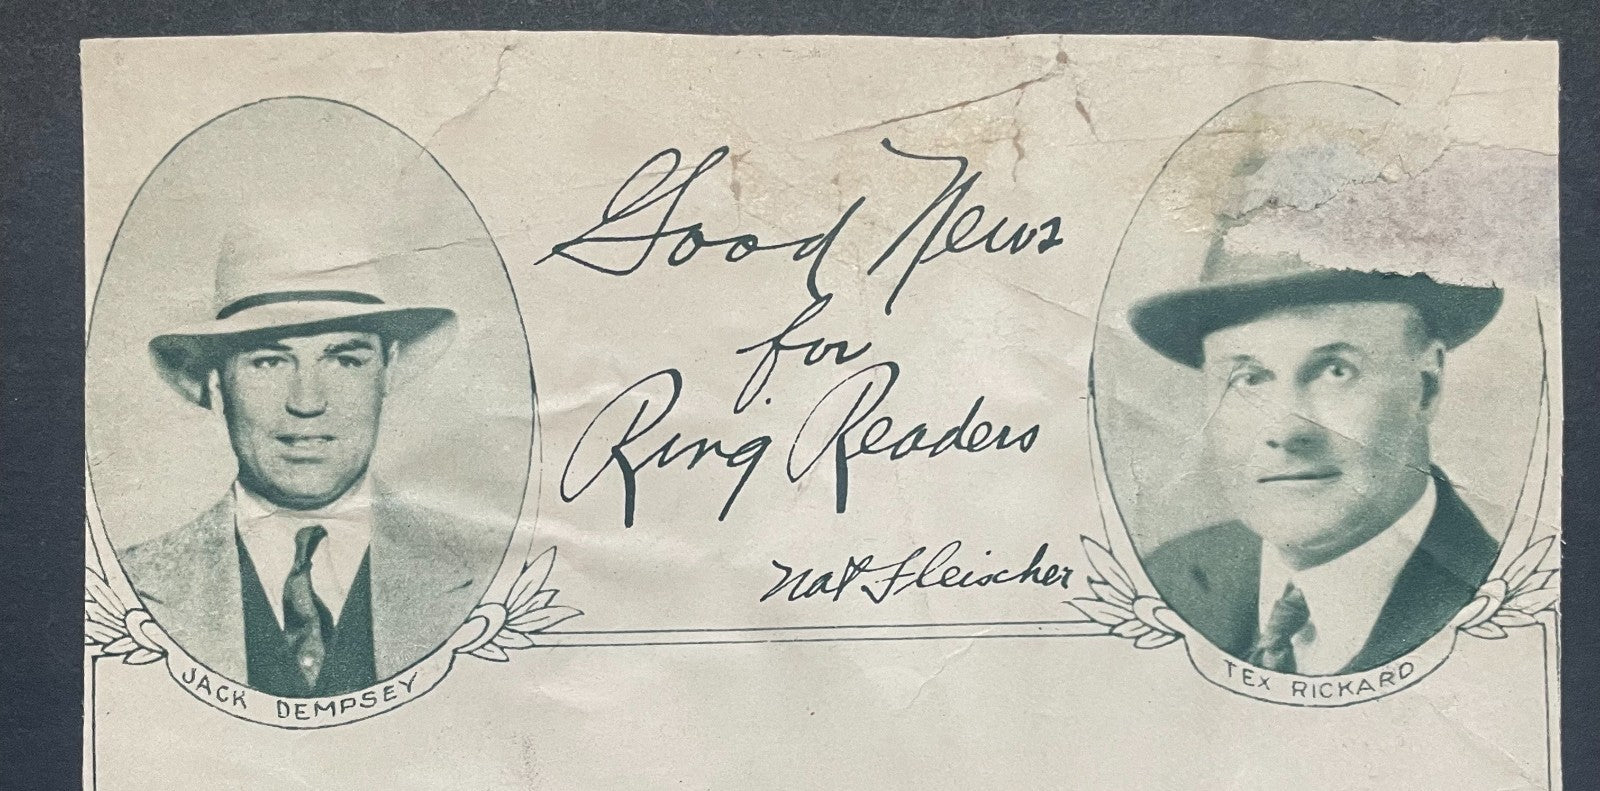 Good News
for
Ring Readers
Nat Fleischer
JACK DEMPSEY
TEX RICKARD